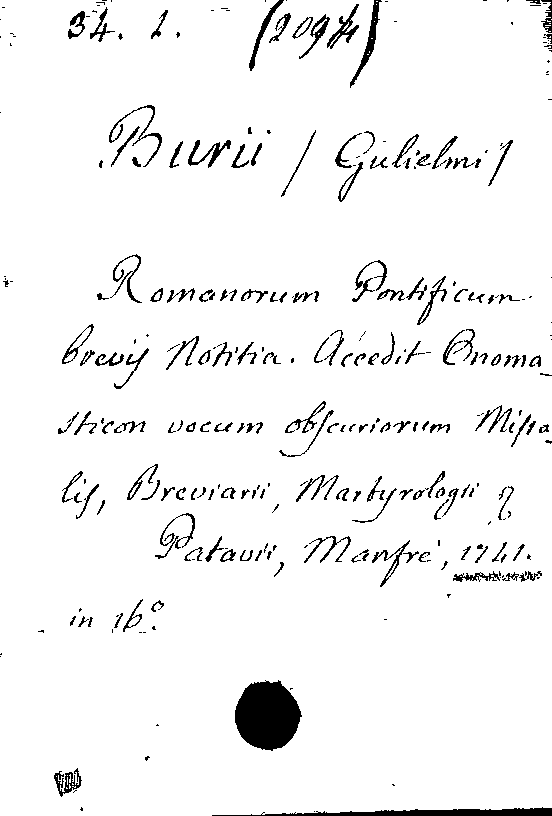 34. 1. (2094)
Burii / Gulielmi /
Romanorum Pontificum
brevis Notitia. Accedit Onoma-
sticon vocum obscuriorum Missa-
lis, Breviarii, Martyrologii
Patavii, Manfrè, 1741.
in 16º.